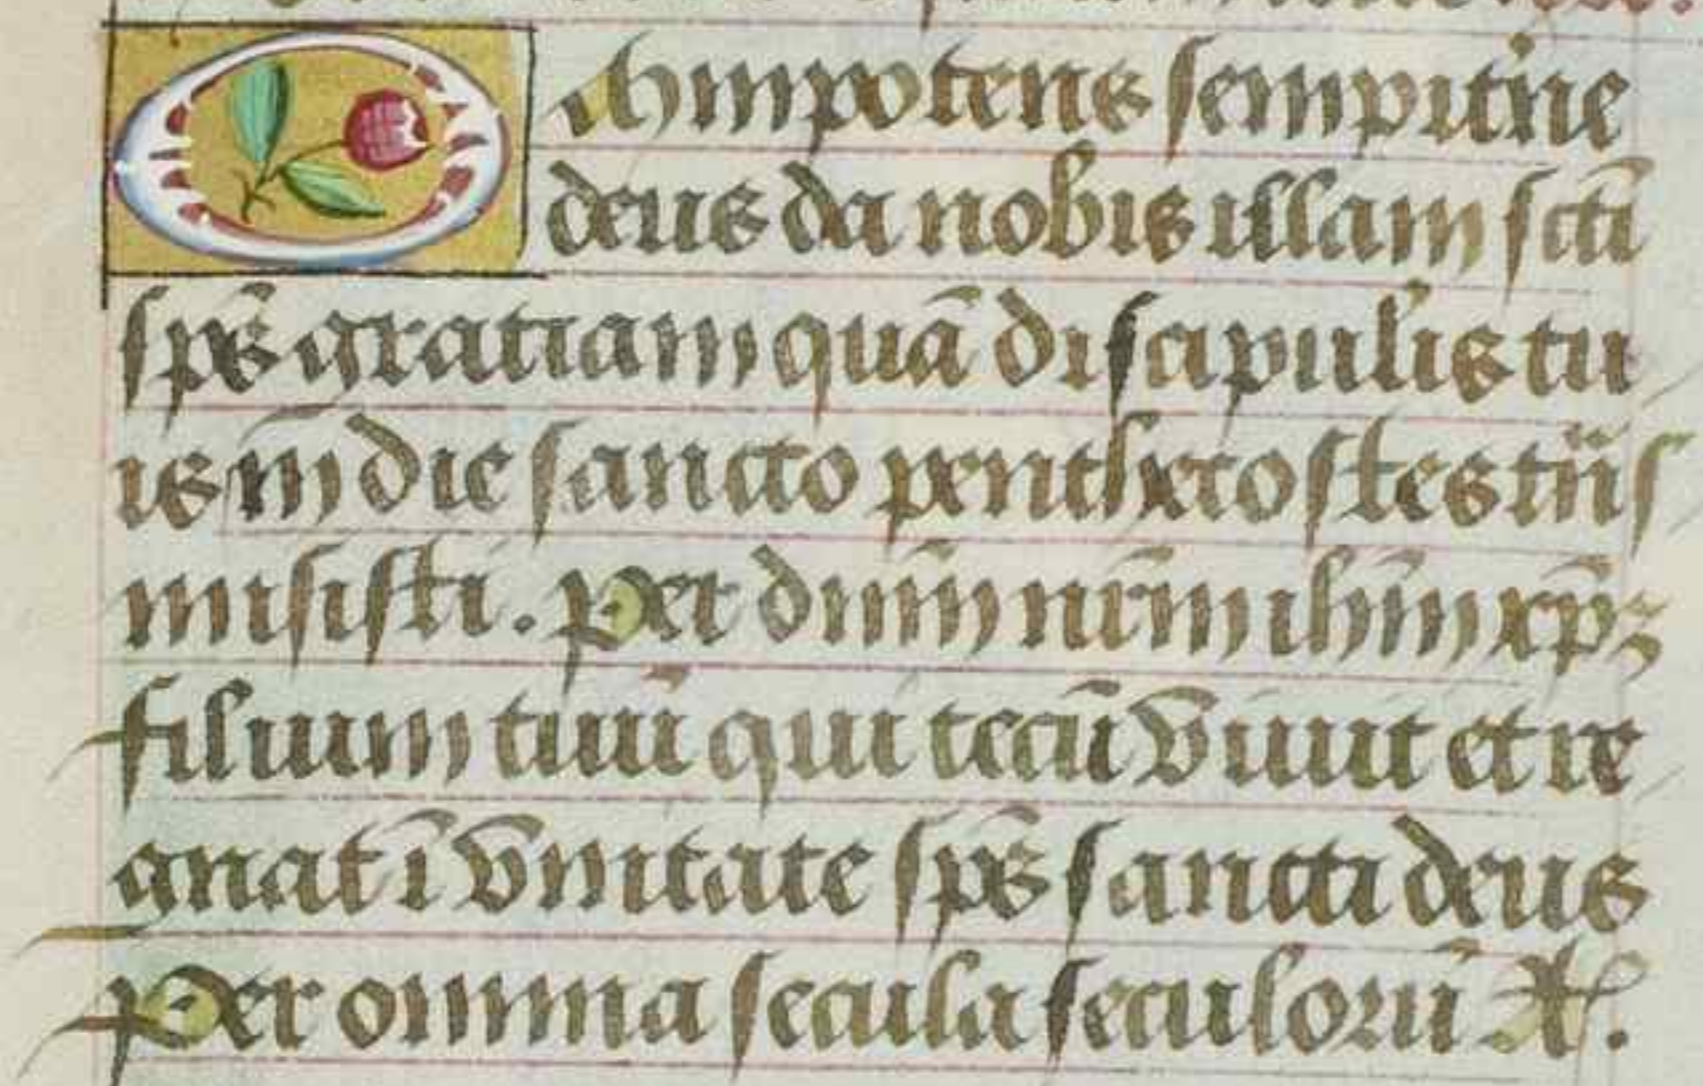 Omnipotens sempit'ne
deus da nobis illam scti
sps̄ gratiam quā discipulis tu
is in die sancto penthecostes tiis
misisti. Per dnm̄ nrm̄ ihm̄ xp̄ʒ
filium tuū qui tecū viuit et re
gnat ī vnitate sps̄ sancti deus
Per omnia secula seculorū A.